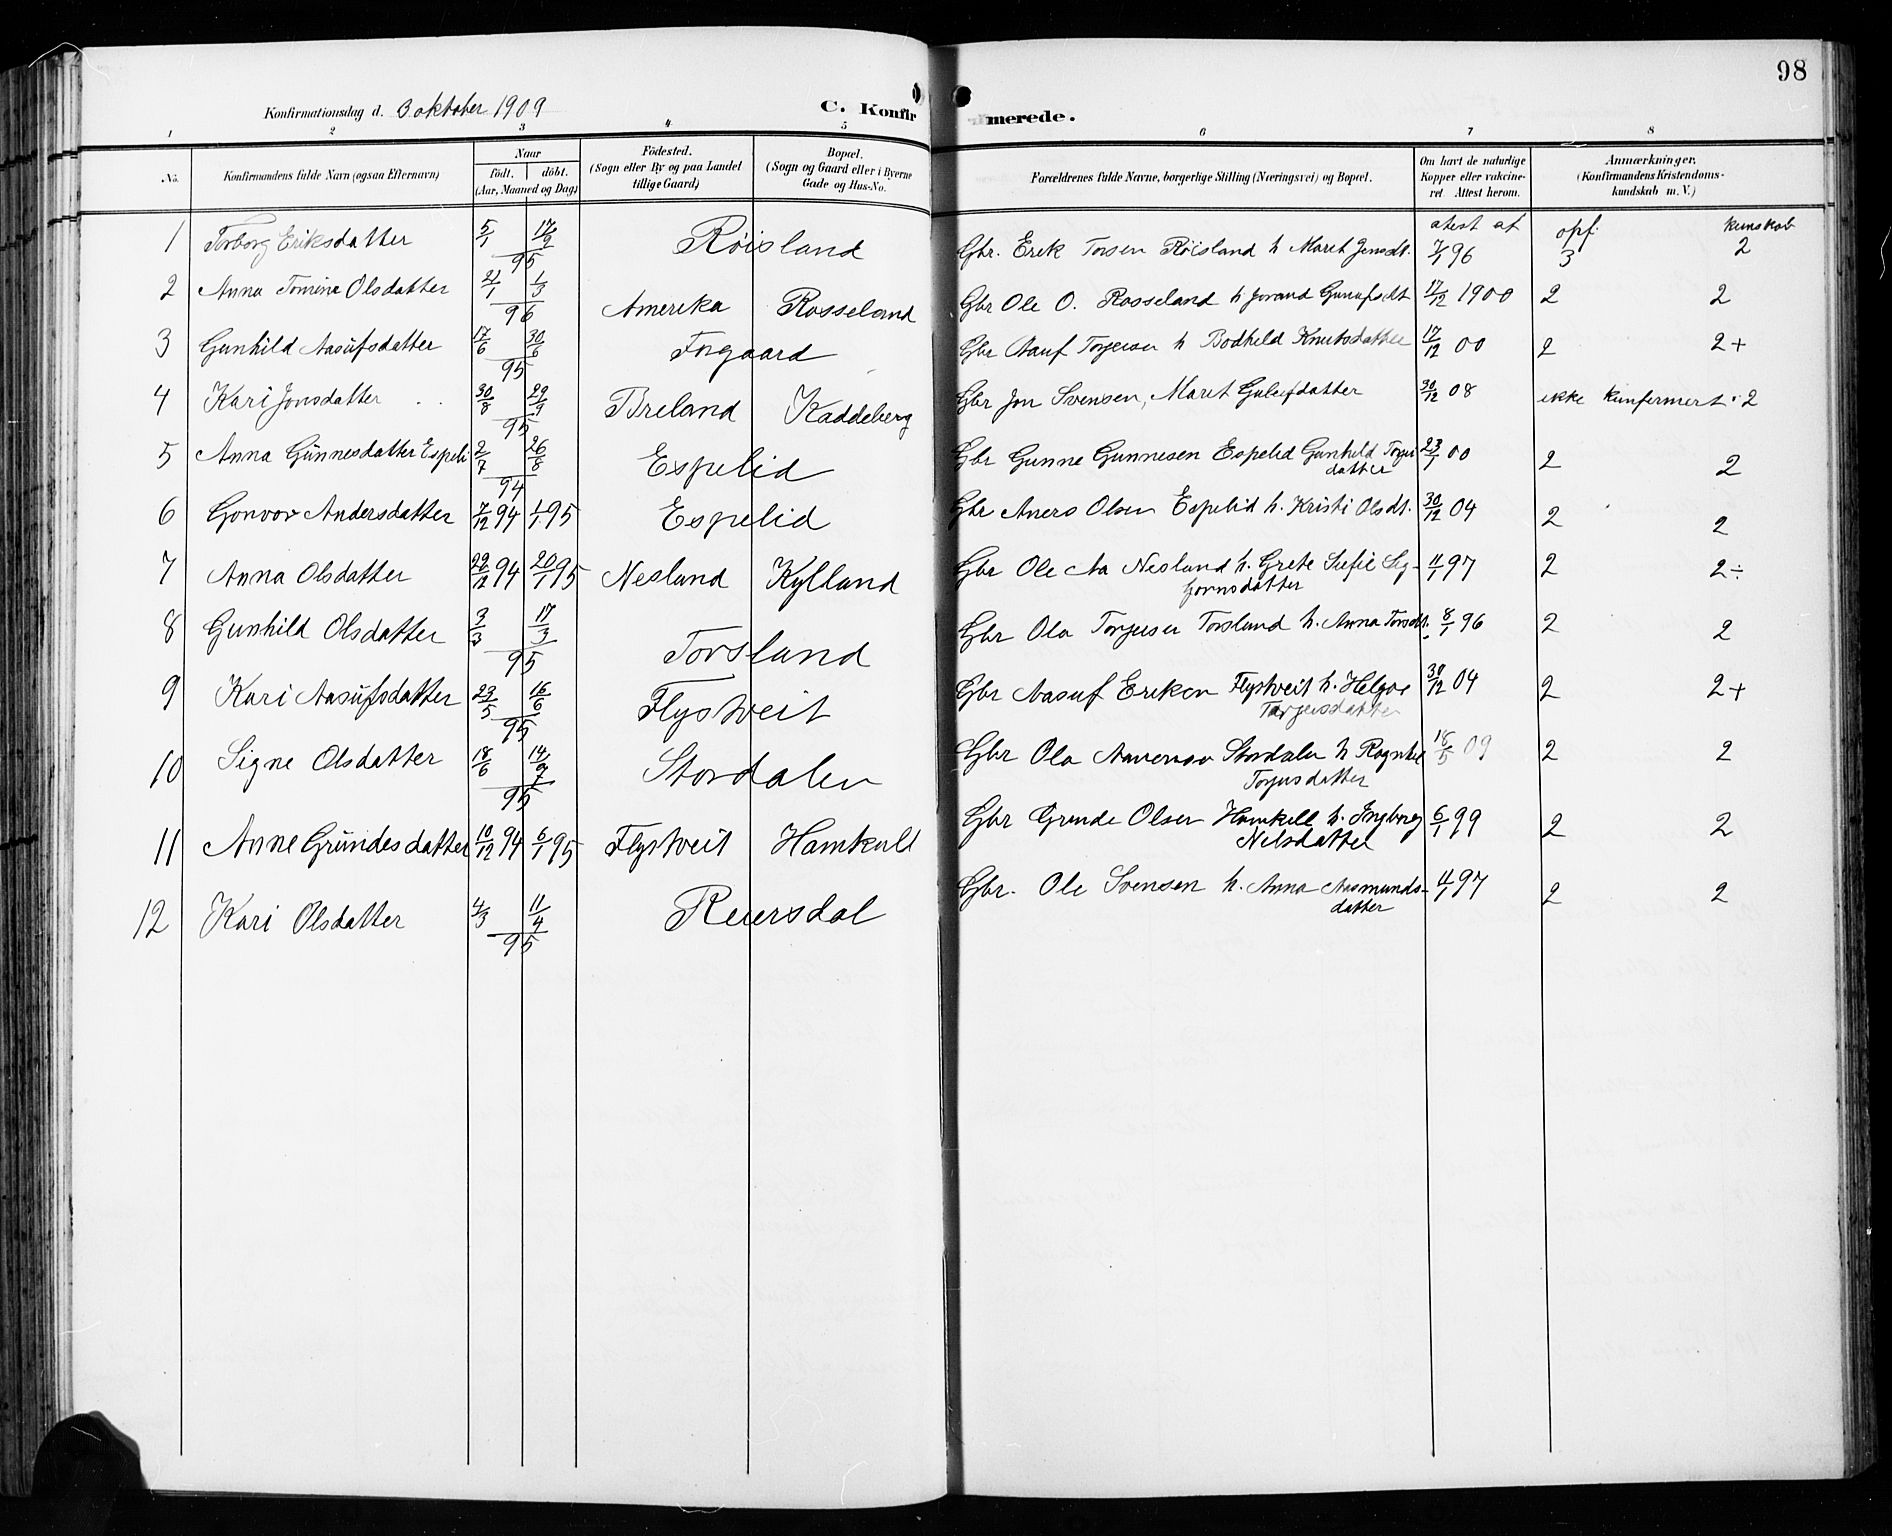 98
Konfirmationsdag d. 3 oktober 1909 C. Konfirmerede.
1 2 3 4 5 6 7 8
No.
Konfirmandens fulde Navn (ogsaa Efternavn)
Naar
födt. döbt.
(Aar, Maaned og Dag)
Födested.
(Sogn eller By og paa Landet
tillige Gaard)
Bopæl.
(Sogn og Gaard eller i Byerne
Gade og Hus-No.
Forældrenes fulde Navne, borgerlige Stilling (Næringsvei) og Bopæl.
Om havt de naturlige
Kopper eller vakcine-
ret Attest herom.
Anmærkninger.
(Konfirmandens Kristendoms-
kundskab m. V.)
atest af opf. kunskab
1 Torborg Eriksdatter 5/1 17/2 95 Røisland Gbr. Erik Torsen Røisland h Maret Jensdt. 7/1 96 3 2
2 Anna Tomine Olsdatter 21/1 1/3 96 Amerika Rosseland Gbr Ole O. Rosseland h Jorand 17/12 1900 2 2
3 Gunhild Aasufsdatter 17/6 30/6 95 Fogaard Gbr Aauf Torjusen h Bodheld Knutsdatter 17/12 00 2 2+
4 Kari Jonsdatter 30/8 29/9 95 Breland Kaddeberg Gbr Jon Svensen, Maret 30/12 08 ikke kunfermert 2
5 Anna Gunnesdatter Espeli 2/7 26/8 94 Espelid Gbr Gunne Gunnesen Espelid Gunhild Torjus
datter 23/1 00 2 2
6 Gonvor Andersdatter 7/12 94 1/1 95 Espelid Gbr Aners Olsen Espelid h. Kristi Olsdt. 30/12 04 2 2
7 Anna Olsdatter 22/12 94 20/1 95 Nesland Kylland Gbr Ole Aa Nesland h. Grete Sefie Sig-
jornsdatter 11/1 97 2 2÷
8 Gunhild Olsdatter 3/3 17/3 95 Torsland Gbr Ola Torjusen Torsland h. Anna Torsdt. 8/1 96 2 2
9 Kari Aasufsdatter 23/5 16/6 95 Flystveit Gbr Aasuf Eriksen Flystveit h. Helgoe
Tarjeisdatter 30/12 04 2 2+
10 Signe Olsdatter 18/6 14/7 95 Stordalen Gbr Ola Stordalen h Ragnhil
Torjusdatter 18/5 09 2 2
11 Anne Grundesdatter 10/12 94 6/1 95 Flystveit Hamkull Gbr Grunde Olsen Hamkull h. Ingborg
Nelsdatter 6/1 99 2 2
12 Kari Olsdatter 4/3 11/4 95 Reiersdal Gbr. Ole Svensen h. Anna Aasmunds-
datter 11/1 97 2 2